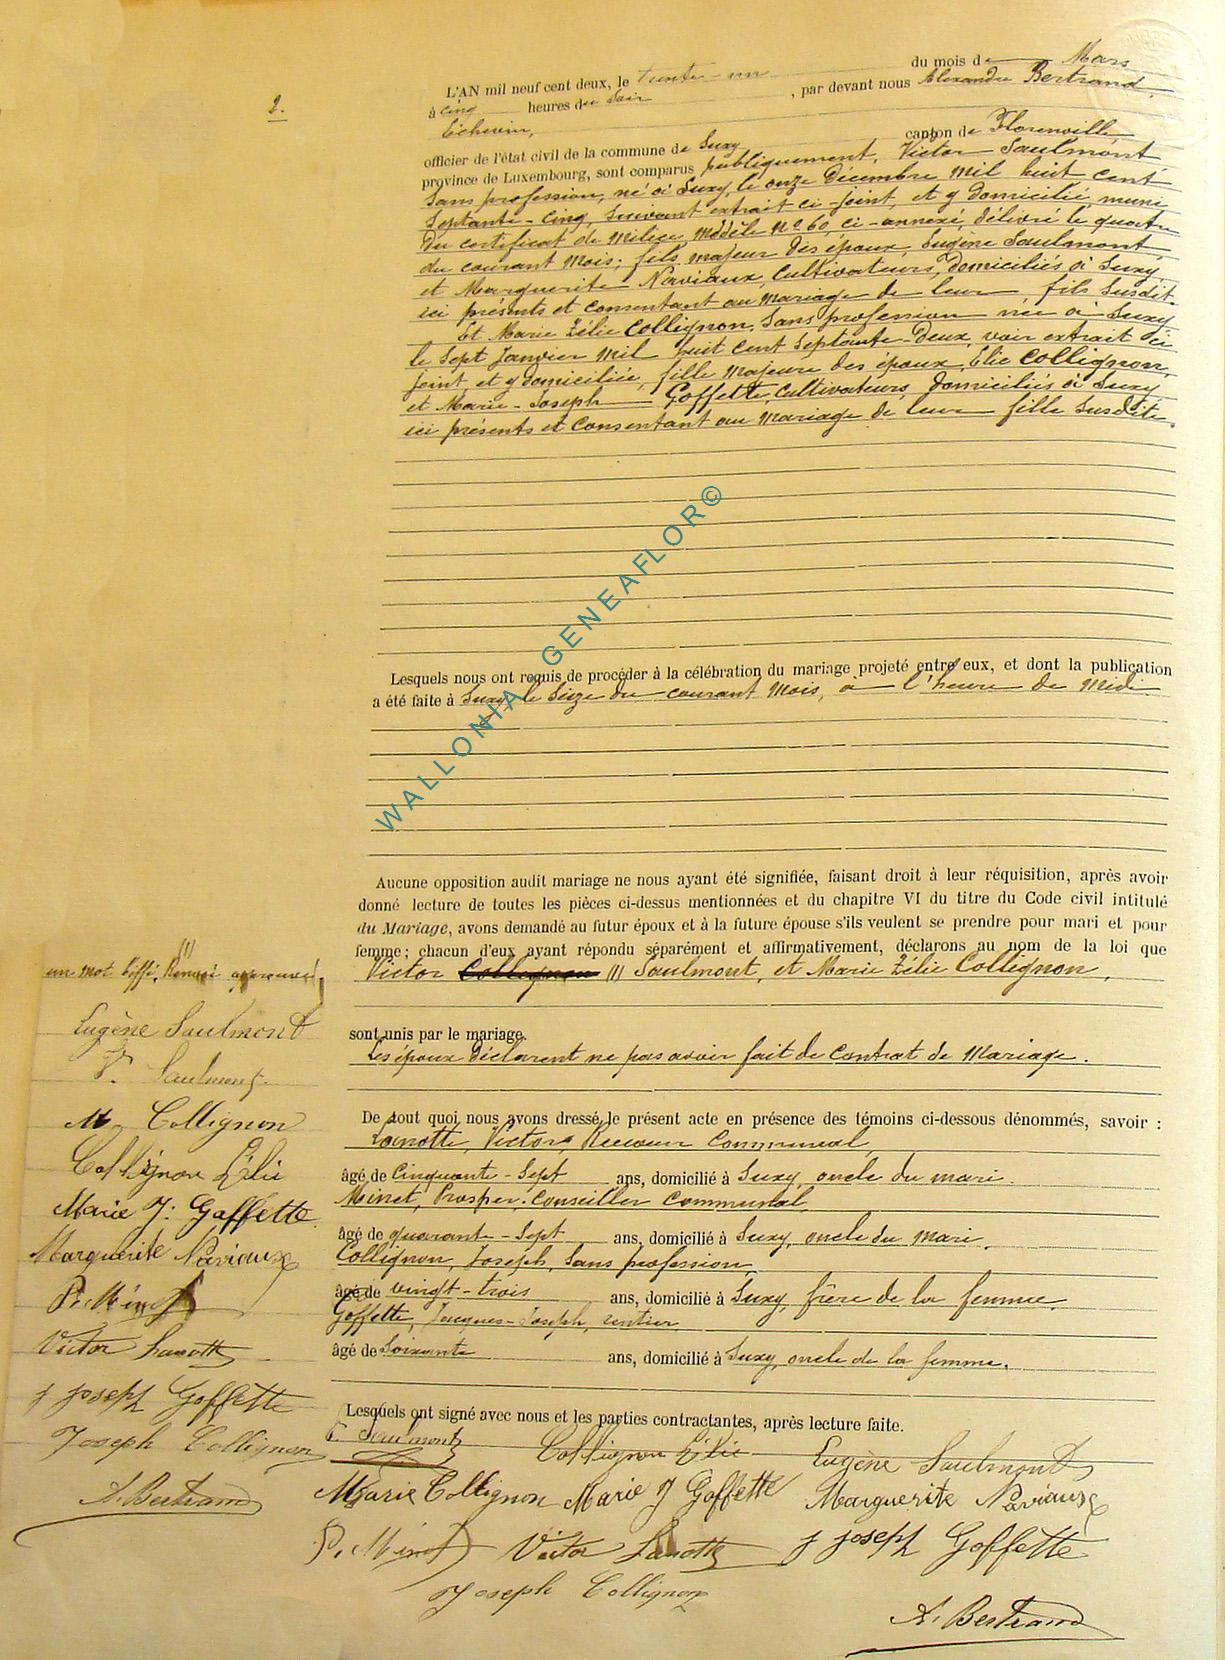 2.
L'AN mil neuf cent deux, le trente-un du mois de Mars
à cinq heures du Soir, par devant nous Alexandre Bertrand,
Echevin,
officier de l'état civil de la commune de Suxy canton de Florenville
province de Luxembourg, sont comparus publiquement, Victor Saulmont
Sans profession, né à Suxy, le onze Décembre mil huit cent
Septante-cinq, suivant extrait ci-joint, et y domicilié, muni
du certificat de Milice, Modèle n° 60, ci-annexé, délivré le quatre
du courant mois; fils majeur des époux, Eugène Saulmont
et Marguerite Naviaux, cultivateurs, domiciliés à Suxy,
ici présents et consentant au mariage de leur fils susdit.
Et Marie Zélie Collignon, Sans profession née à Suxy
le Sept Janvier mil huit cent Septante-Deux, voir extrait ci
joint, et y domiciliée, fille majeure des époux, Elie Collignon,
et Marie-Joseph Goffette, cultivateurs, domiciliés à Suxy
ici présents et consentant au mariage de leur fille susdite.
Lesquels nous ont requis de procéder à la célébration du mariage projeté entre eux, et dont la publication
a été faite à Suxy le Seize du courant mois, à l'heure de Midi
Aucune opposition audit mariage ne nous ayant été signifiée, faisant droit à leur réquisition, après avoir
donné lecture de toutes les pièces ci-dessus mentionnées et du chapitre VI du titre du Code civil intitulé
du Mariage, avons demandé au futur époux et à la future épouse s'ils veulent se prendre pour mari et pour
femme; chacun d'eux ayant répondu séparément et affirmativement, déclarons au nom de la loi que
Victor Collignon (1) Saulmont, et Marie Zélie Collignon,
sont unis par le mariage.
Les époux déclarent ne pas avoir fait de contrat de mariage.
De tout quoi nous avons dressé le présent acte en présence des témoins ci-dessous dénommés, savoir :
Lanotte, Victor, Receveur Communal
âgé de Cinquante-Sept ans, domicilié à Suxy, oncle du mari.
Minet, Prosper, Conseiller Communal
âgé de quarante-Sept ans, domicilié à Suxy, oncle du mari,
Collignon, Joseph, Sans profession
âgé de vingt-trois ans, domicilié à Suxy, frère de la femme,
Goffette, Jacques-Joseph, rentier
âgé de Soixante ans, domicilié à Suxy, oncle de la femme.
Lesquels ont signé avec nous et les parties contractantes, après lecture faite.
Saulmont Collignon Elie Eugène Saulmont
Marie Collignon Marie J Goffette Marguerite Naviaux
P. Minet Victor Lanotte J Joseph Goffette
Joseph Collignon
A. Bertrand
(1)
un mot biffé, Renvoi approuvé,
Eugène Saulmont
V. Saulmont
M Collignon
Collignon Elie
Marie J. Goffette
Marguerite Naviaux
P. Minet
Victor Lanotte
J Joseph Goffette
Joseph Collignon
A. Bertrand
WALLONIA GENEAFLOR©